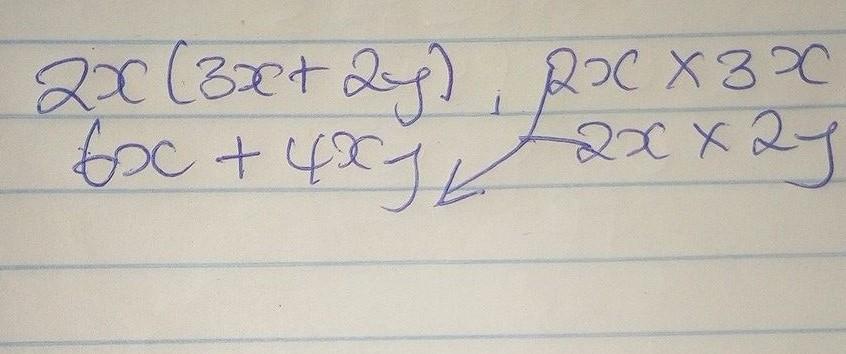 2x(3x+2y), 2x × 3x
6x + 4xy 2x × 2y